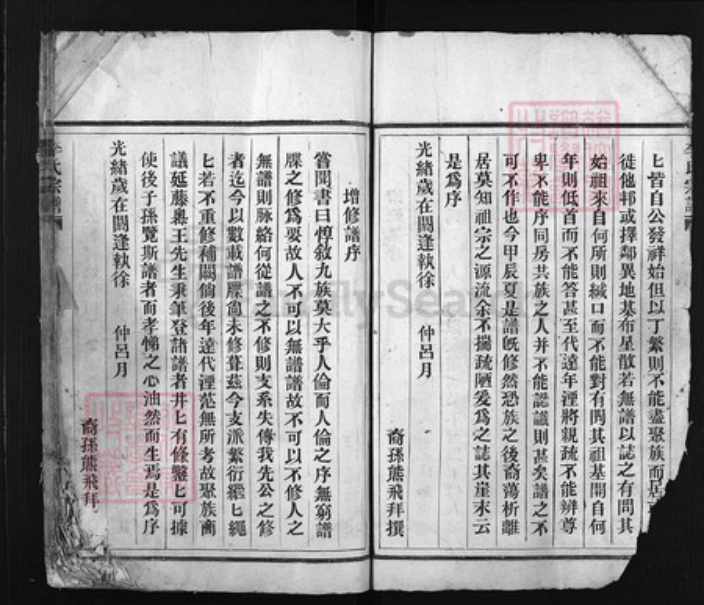 匕皆自公發祥始但以丁繁則不能盡聚族而居
徒他邨或擇鄰異地基布星散若無譜以誌之有問其
始祖來自何所則緘口而不能對有問其祖基開自何
年則低首而不能答甚至代遠年湮將親疏不能辨尊
卑不能序同房共族之人并不能認識則甚矣譜之不
可不作也今甲辰夏是譜旣修然恐族之後裔蕩析離
居莫知祖宗之源流余不揣疏陋爰為之誌其崖末云
是為序
光緒歲在閼逢執徐 仲呂月
裔孫熊飛拜撰
增修譜序
嘗聞書曰惇敘九族莫大乎人倫而人倫之序無窮譜
牒之修為要故人不可以無譜譜故不可以不修人之
無譜則脉絡何從譜之不修則支系失傳我先公之修
者迄今以數載譜牒尚未修葺茲今支派繁衍繼匕繩
匕若不重修補闕倘後年遠代湮范無所考故聚族商
議延藤鼻王先生秉筆登諸譜者井匕有條鑿匕可據
使後子孫覽斯譜者而孝悌之心油然而生焉是為序
光緒歲在閼逢執徐 仲呂月
裔孫熊飛拜
氏宗譜
FamilySearch